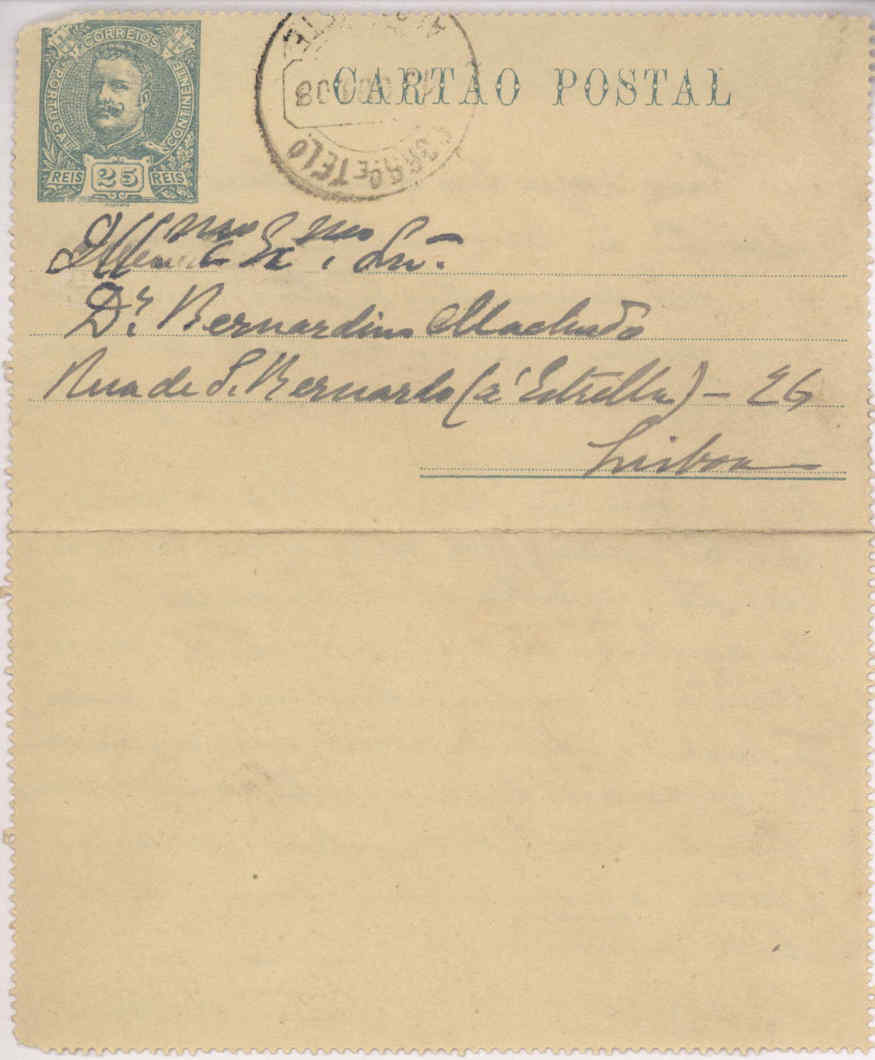 CORREIOS
PORTUGAL CONTINENTE
REIS 25 REIS
CARTÃO POSTAL
CORRº E TELº
Illmo e Exmo. Snr.
Dr. Bernardino Machado
Rua de S. Bernardo (á Estrella) - 26
Lisboa